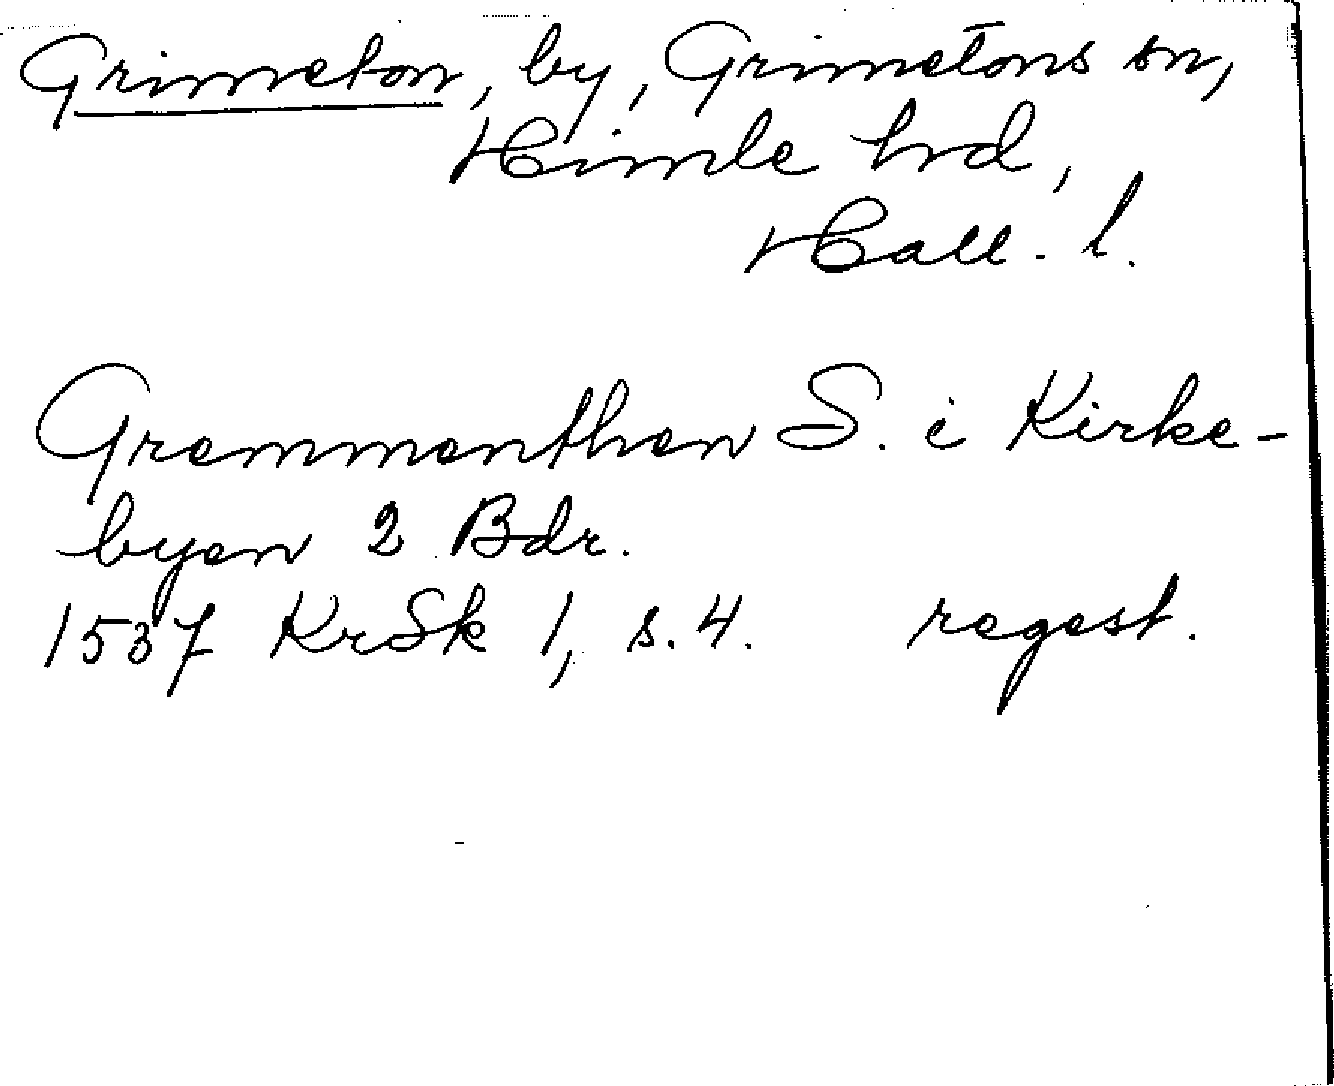 Grimeton, by, Grimetons sn,
Himle hrd,
Hall. l.
Gremmenthen S. i Kirke-
byen 2 Bdr.
1537 KrSk 1, s. 4. regest.